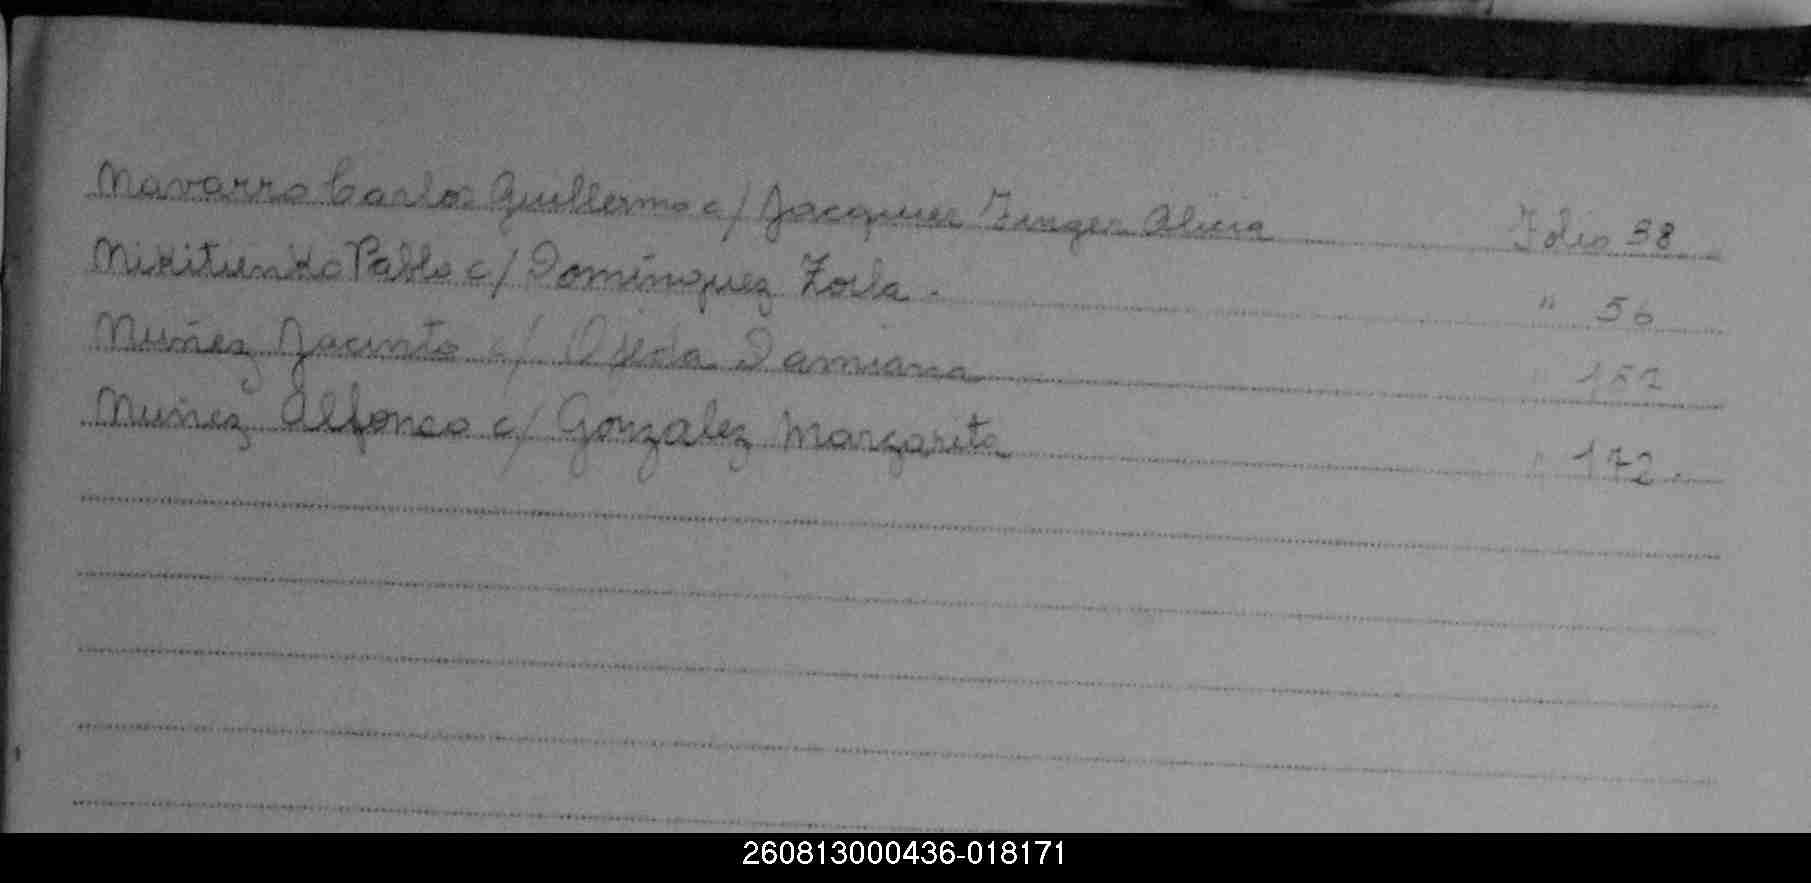 Navarro Carlos Guillermo c/ Jacquier Finger Alicia Folio 38
Nikitienko Pablo c/ Domínguez Zoila. " 56
Nuñez Jacinto c/ Ojeda Damiana "
Nuñez Alfonso c/ Gonzalez Margarita " 172
260813000436-018171